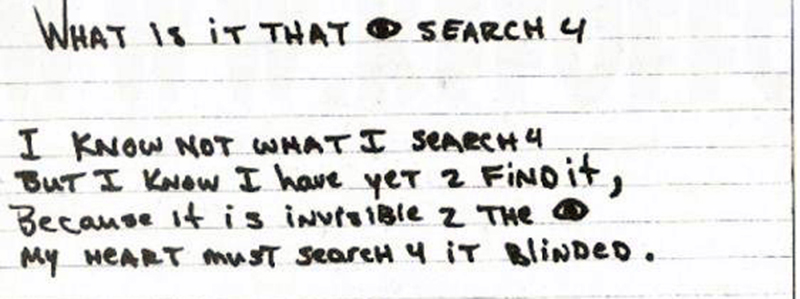 WHAT IS IT THAT 👁 SEARCH 4
I KNOW NOT WHAT I SEARCH 4
BUT I KNOW I have yet 2 FIND it,
Because it is invisible 2 THE 👁
My HEART must search 4 iT BLiNDED.